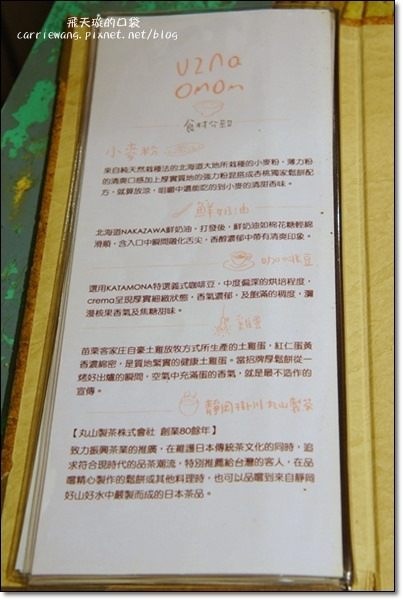 飛天璇的口袋
carriewang.pixnet.net/blog
uzna
omom
食材介紹
小麥粉
來自純天然栽種法的北海道大地所栽種的小麥粉，薄力粉
的清爽口感加上厚實質地的強力粉混搭成杏桃獨家鬆餅配
方，就算放涼，咀嚼中還能吃的到小麥的清甜香味。
鮮奶油
北海道NAKAZAWA鮮奶油，打發後，鮮奶油如棉花糖輕綿
滑順，含入口中瞬間融化舌尖，香醇濃郁中帶有清爽印象。
咖啡豆
選用KATAMONA特選義式咖啡豆，中度偏深的烘培程度，
crema呈現厚實細緻狀態，香氣濃郁，及飽滿的稠度，瀰
漫核果香氣及焦糖甜味。
雞蛋
苗栗客家庄自豪土雞放牧方式所生產的土雞蛋，紅仁蛋黃
香濃綿密，是質地緊實的健康土雞蛋。當招牌厚鬆餅從一
烤好出爐的瞬間，空氣中充滿蛋的香氣，就是最不造作的
宣傳。
靜岡掛川丸山製茶
【丸山製茶株式會社 創業80餘年】
致力振興茶業的推廣，在維護日本傳統茶文化的同時，追
求符合現時代的品茶潮流，特別推薦給台灣的客人，在品
嚐精心製作的鬆餅或其他料理時，也可以品嚐到來自靜岡
好山好水中嚴製而成的日本茶品。